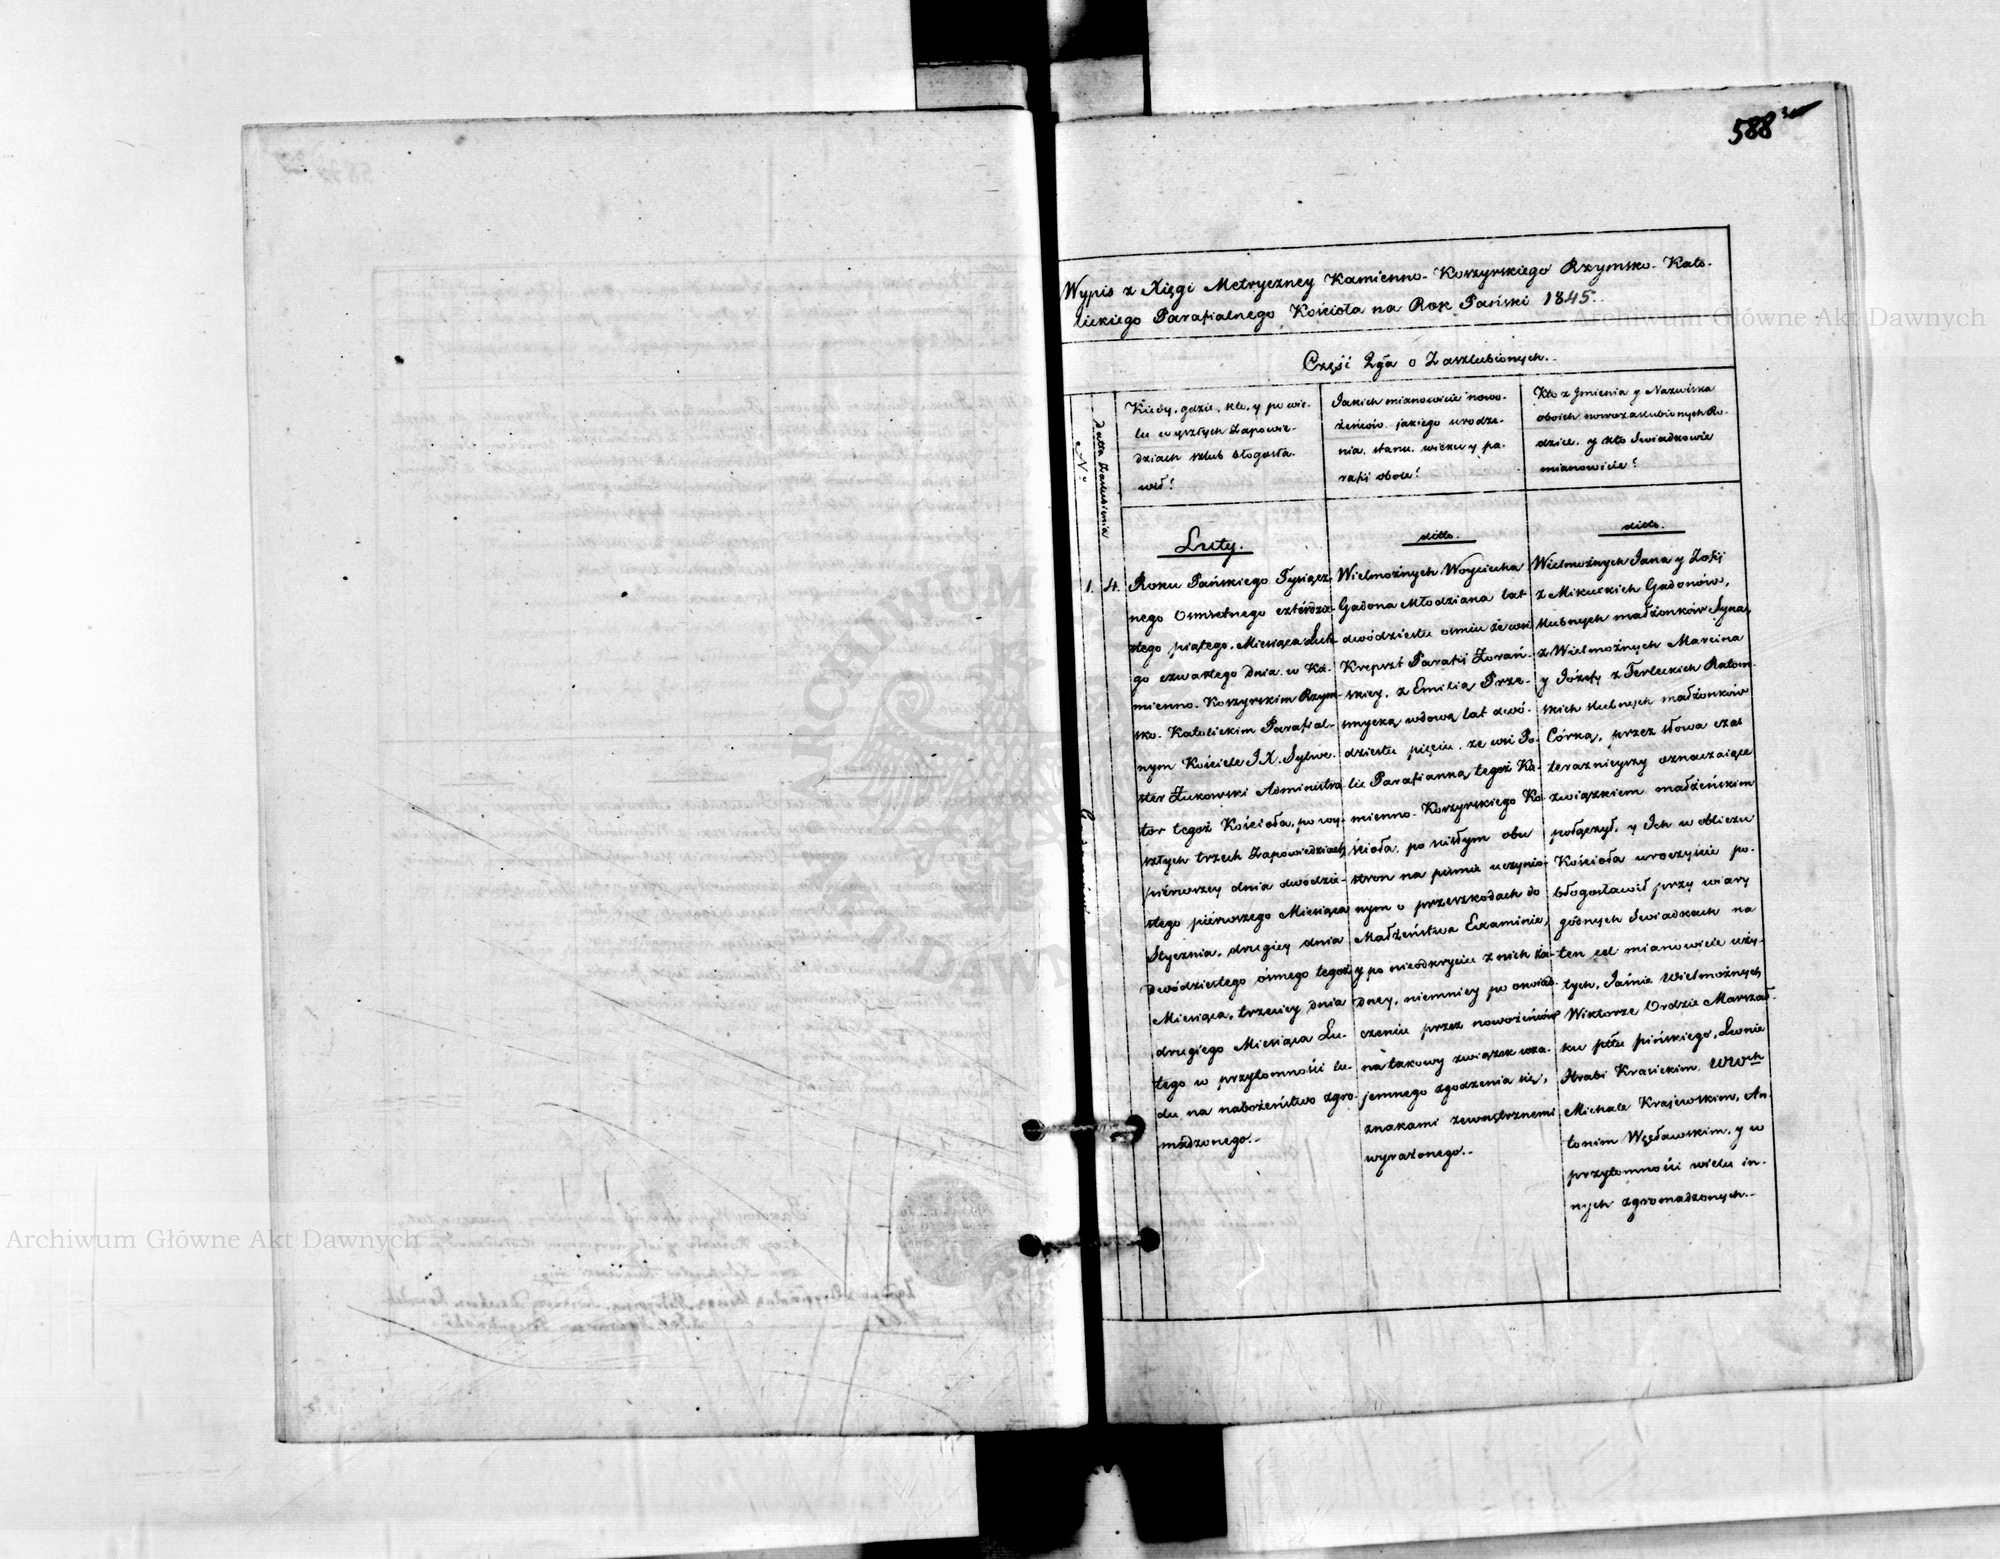 588
Wypis z Xięgi Metryczney Kamienno-Koszyrskiego Rzymsko-Kato-
lickiego Parafialnego Kościoła na Rok Pański 1845.
Część 2ga o Zaszlubionych.
No
Datta Zaszlubienia
Kiedy, gdzie, kto, y po wie-
lu wyszłych Zapowie-
dziach szlub błogosła-
wił?
Jakich mianowicie nowo-
żeńców, jakiego urodze-
nia, stanu, wieku y pa-
rafii oboie?
Kto z Jmienia y Nazwiska
oboich nowozaslubionych Ro-
dzice, y kto Swiadkowie
mianowicie?
Luty.
1. 4.
Roku Pańskiego Tysiącz
nego Osmsetnego czterdzie-
stego piątego, Miesiąca Lute-
go czwartego Dnia, w Ka-
mienno-Koszyrskim Rzym-
sko-Katolickim Parafial-
nym Kościele J.X. Sylwe-
ster Żukowski Administra
tor tegoż Kościoła, po wy-
szłych trzech Zapowiedziach
piérwszey dnia dwódzie-
stego pierwszego Miesiąca
Stycznia, drugiey dnia
Dwódziestego ósmego tegoż
Miesiąca, trzeciey dnia
drugiego Miesiąca Lu-
tego w przytomności lu-
du na nabożeństwo zgro-
madzonego.-
ditto.
Wielmożnych Woyciecha
Gadona Młodziana lat
dwódziestu osmiu ze wsi
Krepszt Parafii Żorań-
skiey, z Emilią Prze-
smycką wdową lat dwó-
dziestu pięciu, ze wsi Po-
lic Parafianką tegoż Ka-
mienno-Koszyrskiego Ko-
ścioła, po ścisłym obu
stron na pismie uczynio-
nym o przeszkodach do
Małżeństwa Examinie,
y po nieodkryciu z nich ża-
dney, niemniey po oswiad-
czeniu przez nowożeńców
na takowy związek wza-
jemnego zgodzenia się,
znakami zewnętrznemi
wyrażonego.-
ditto.
Wielmożnych Jana y Zofii
z Mikuckich Gadonów,
slubnych małżonków Syna,
z Wielmożnych Marcina
y Józefy z Terleckich Ratom-
skich slubnych małżonków
Córką, przez słowa czas
teraznieyszy oznaczaiące
związkiem małżeńskim
połączył, y Ich w obliczu
Kościoła uroczyście po-
błogosławił przy wiary
godnych Swiadkach na
ten cel mianowicie uży-
tych, Jaśnie Wielmożnych
Wiktorze Ordzie Marszał-
ku pttu pińskiego, Leonie
Hrabi Krasickim, WWch
Michale Krajewskim, An
tonim Węcławskim, y w
przytomności wielu in-
nych zgromadzonych.-
Archiwum Główne Akt Dawnych
Archiwum Główne Akt Dawnych